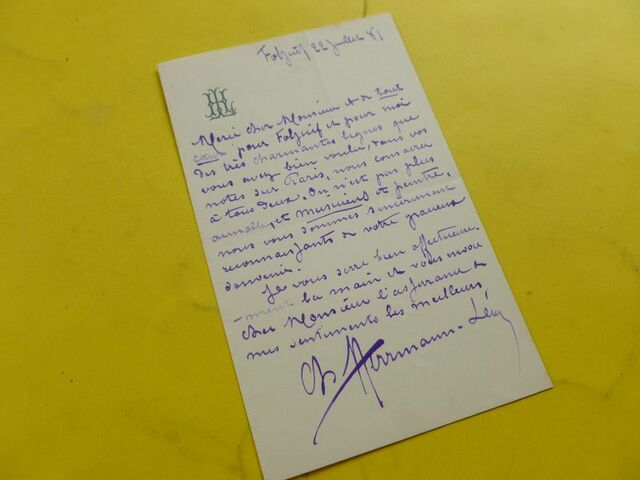 22 juillet 81
HL
Merci cher Monsieur & de tout
cœur pour et pour moi
des très charmantes lignes que
vous avez bien voulu, dans vos
notes sur Paris, nous consacrer
à tous deux. On n'est pas plus
aimable, et musiciens et peintre,
nous vous sommes sincèrement
reconnaissants de votre gracieux
souvenir.
Je vous serre bien affectueuse-
-ment la main et vous envoie
cher Monsieur l'assurance de
mes sentiments les meilleurs
Ch Herrmann-Léon